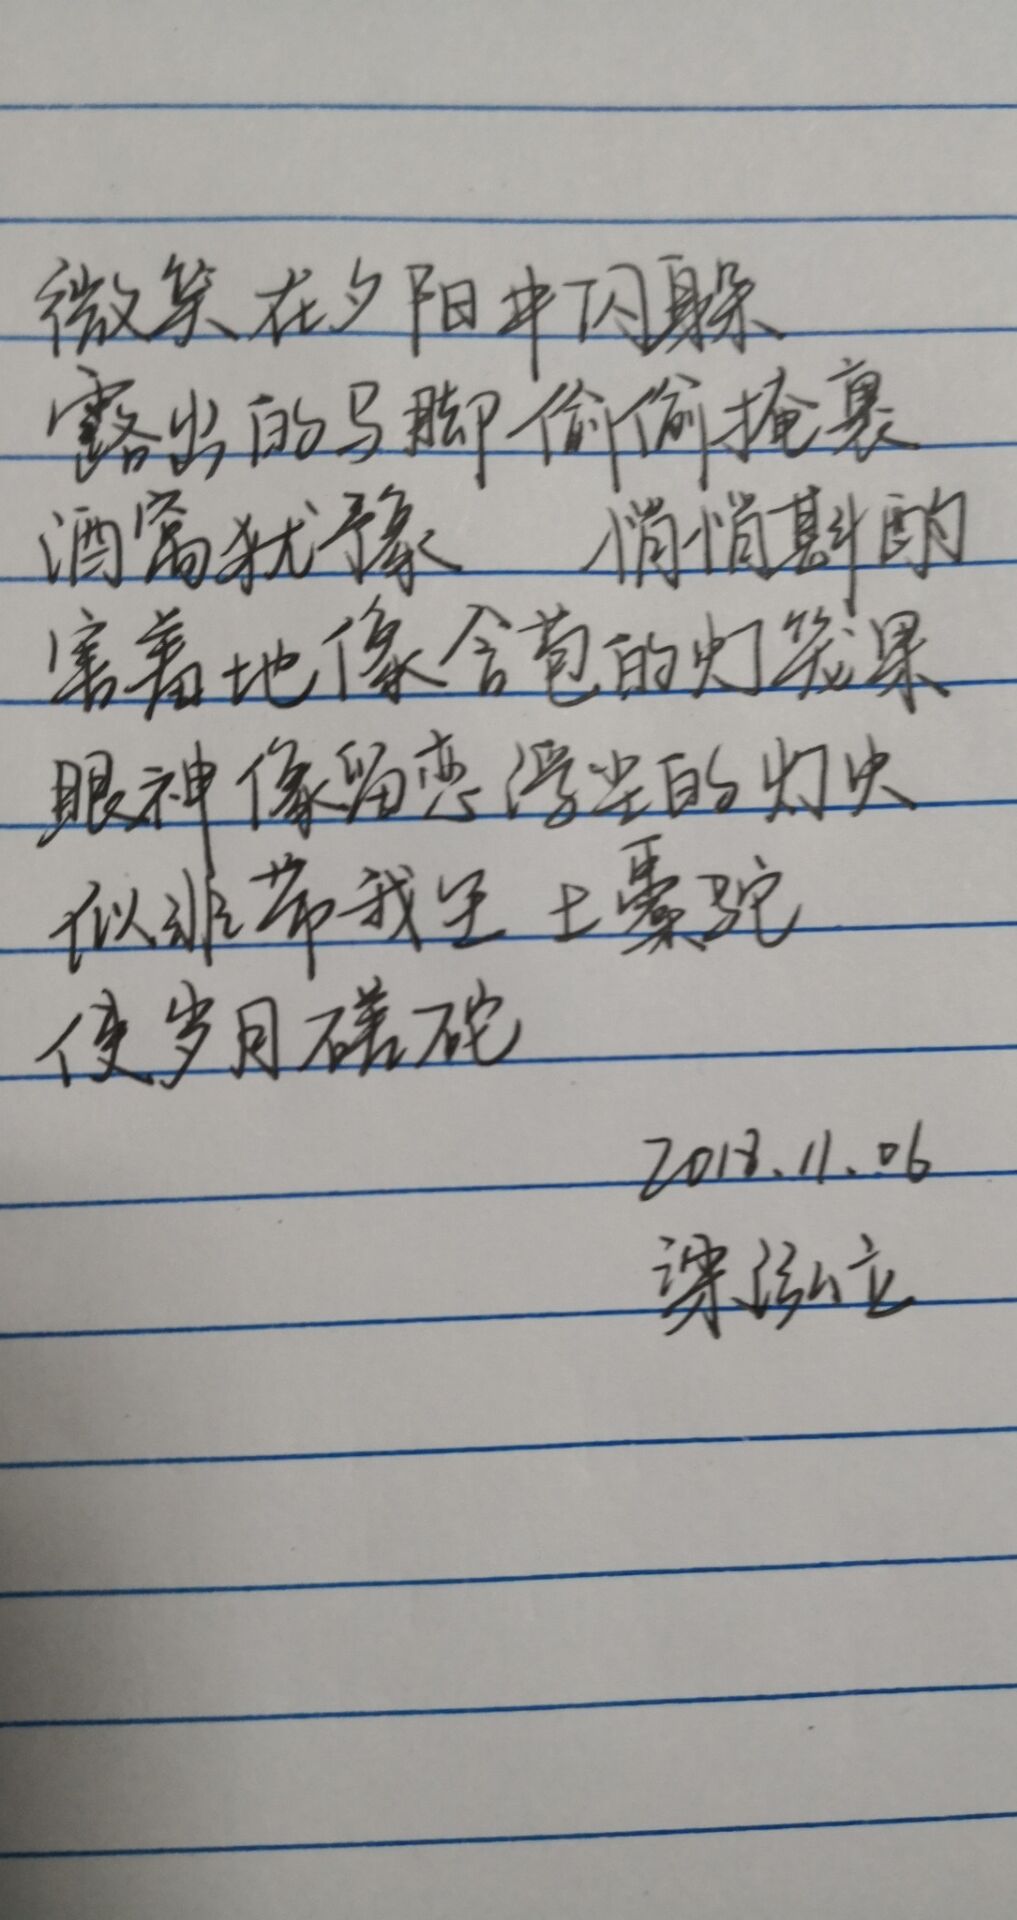 微笑在夕阳中闪躲
露出的马脚偷偷掩裹
酒窝犹豫 悄悄斟酌
害羞地像含苞的灯笼果
眼神像留恋浮尘的灯火
似非带我坐上橐驼
使岁月磋砣
2018.11.06
梁泓立